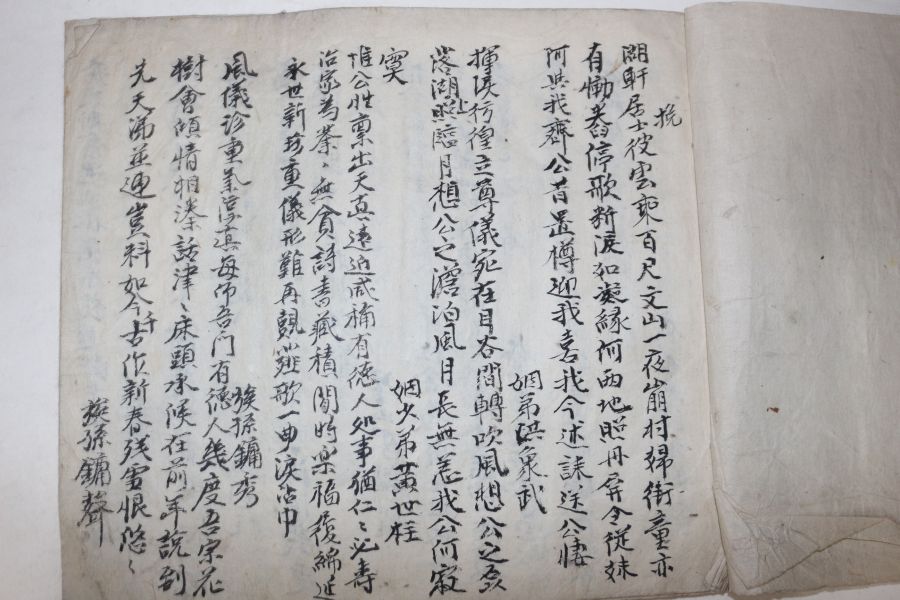 挽
開軒居士彼雲乘百尺文山一夜崩村婦街童亦
有慟春停歌斷淚如凝緣何西地照丹旌令從妹
阿與我齊公昔置樽迎我喜我今述誄送公悽
姻弟洪象武
揮淚彷徨立尊儀宛在目谷間轉吹風想公之
落湖上照臨月想公之澹泊風月長無恙我公何寂
寞
姻少弟黃世柱
惟公性稟出天真遠近咸稱有德人処事猶仁仁必壽
治家為業業無貧詩書藏積閒時樂福履綿延
永世新珍重儀形難再覿薤歌一曲淚沾巾
族孫鏞秀
風儀珍重氣淳真每仰吾門有德人幾度吾宗花
樹會傾情相湊話津津床頭承候在前年說到
先天涕並連豈料如今千古作新春殘雪恨悠悠
族孫鏞聲